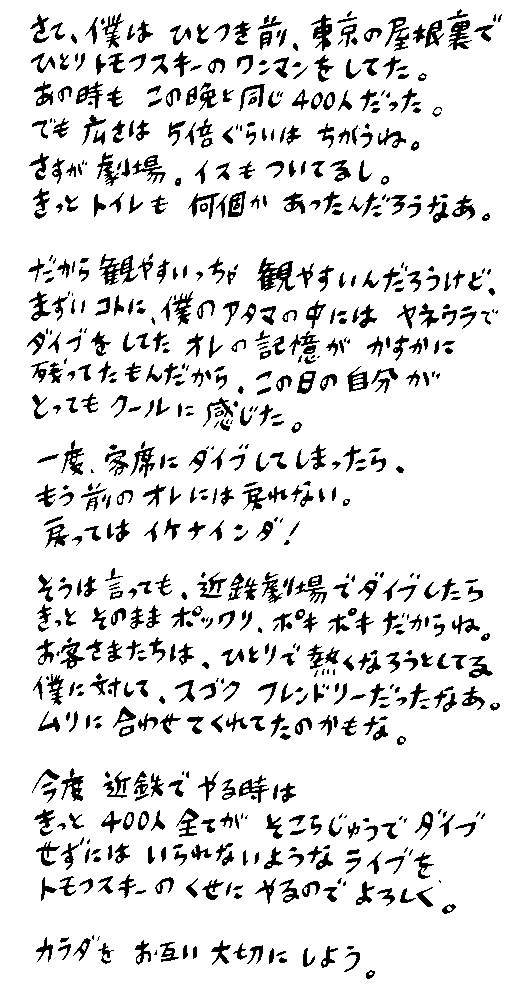 さて、僕は ひとつき前、東京の屋根裏で
ひとりトモフスキーのワンマンをしてた。
あの時も この晩と同じ400人だった。
でも 広さは 5倍ぐらいは ちがうね。
さすが劇場。イスもついてるし。
きっと トイレも 何個か あったんだろうなあ。
だから観やすいっちゃ 観やすいんだろうけど、
まずいコトに、僕のアタマの中には ヤネウラで
ダイブをしてた オレの記憶が かすかに
残ってたもんだから、この日の自分が
とってもクールに 感じた。
一度、客席にダイブしてしまったら、
もう前のオレには戻れない。
戻ってはイケナインダ!
そうは言っても、近鉄劇場でダイブしたら
きっと そのままポックリ、ポキポキだからね。
お客さまたちは、ひとりで熱くなろうとしてる
僕に対して、スゴク フレンドリーだったなあ。
ムリに合わせてくれてたのかもな。
今度 近鉄で やる時は
きっと 400人全てが そこらじゅうで ダイブ
せずには いられないような ライブを
トモフスキーのくせに やるので よろしく。
カラダを お互い 大切に しよう。